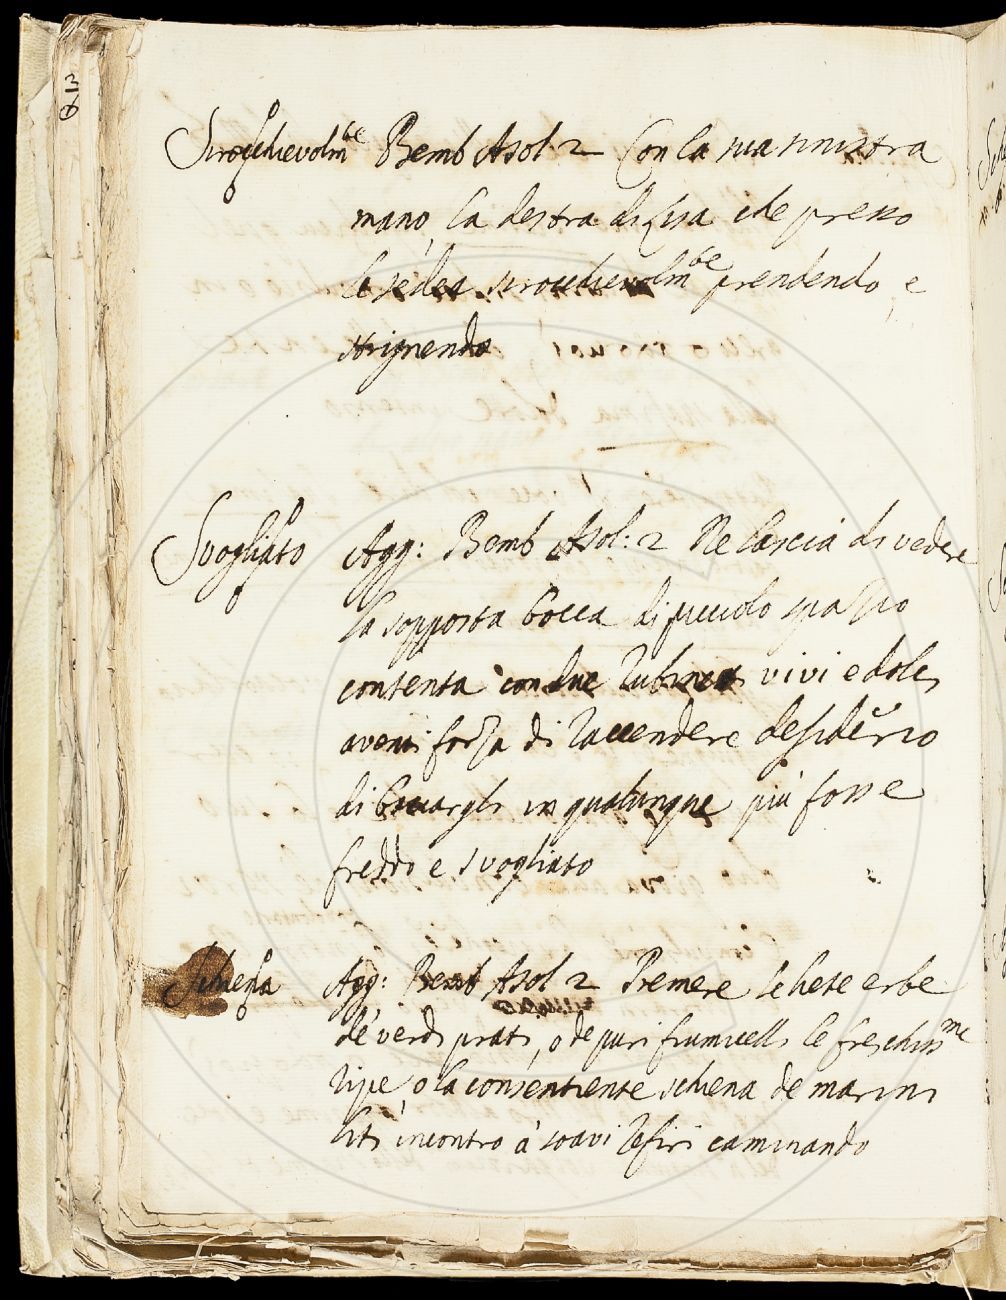 Sirocchievolmte Bemb Asol. 2 Con la sua sinistra
mano, la destra di Lisa che presso
le sedea sirocchievolmte prendendo, e
strignendo
Svogliato Agg: Bemb Asol: 2 Ne lascia di vedere
la sopposta bocca di picciolo spatio
contenta con due rubinetti vivi e dolci
aventi forza di raccendere desiderio
di basciargli in qualunque più fosse
freddo e svogliato
Schiena Agg: Bemb Asol 2 Premere le liete erbe
de verdi prati, o de puri fiumicelli le freschissme
ripe, o la consentiente schena de marini
liti incontro à soavi Zefiri caminando